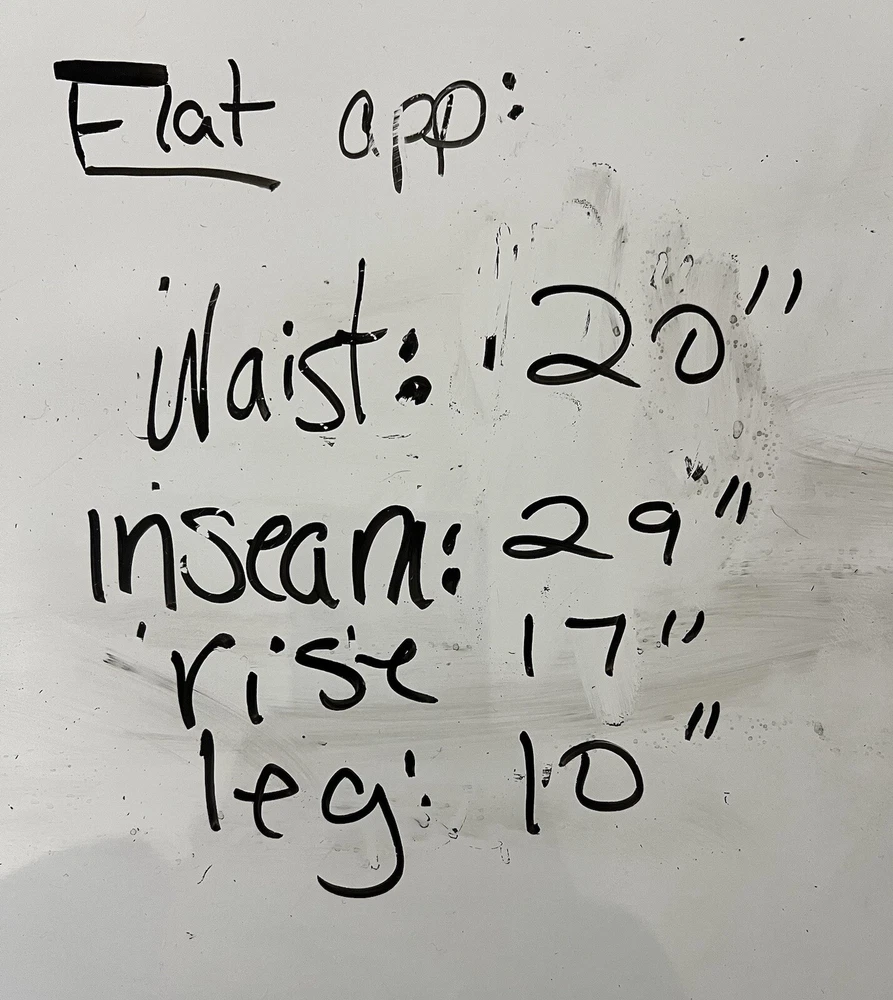 Flat app:
Waist: 20"
inseam: 29"
rise 17"
leg: 10"